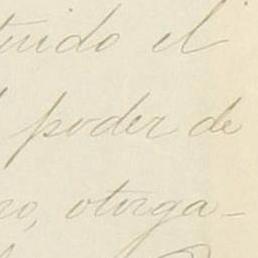 tuido el
poder de
ro, otorga-